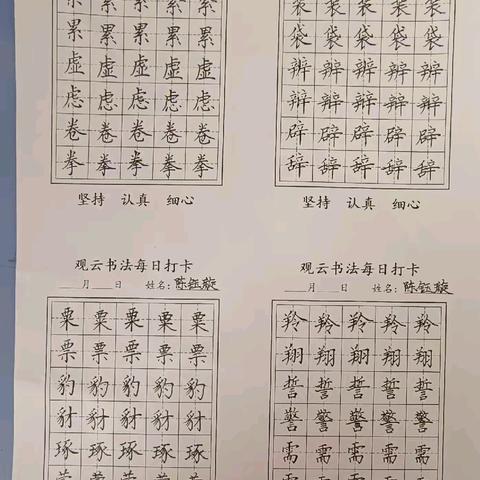 累 累 累 累 累
虚 虚 虚 虚 虚
虑 虑 虑 虑 虑
卷 卷 卷 卷 卷
拳 拳 拳 拳 拳
坚持 认真 细心
袋 袋 袋 袋 袋
辨 辨 辨 辨 辨
辩 辩 辩 辩 辩
辟 辟 辟 辟 辟
辞 辞 辞 辞 辞
坚持 认真 细心
观云书法每日打卡
___月___日 姓名:陈钰璇
粟 粟 粟 粟 粟
票 票 票 票 票
豹 豹 豹 豹 豹
豺 豺 豺 豺 豺
琢 琢 琢 琢 琢
观云书法每日打卡
___月___日 姓名:陈钰璇
羚 羚 羚 羚 羚
翔 翔 翔 翔 翔
誓 誓 誓 誓 誓
警 警 警 警 警
需 需 需 需 需